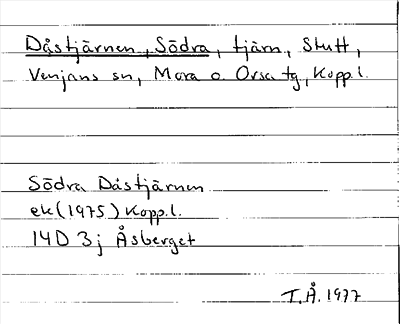 Dåstjärnen, Södra, tjärn, Stutt,
Venjans sn, Mora o. Orsa tg, Kopp.l.
Södra Dåstjärnen
ek(1975) Kopp.l.
14D 3j Åsberget
T.Å. 1977